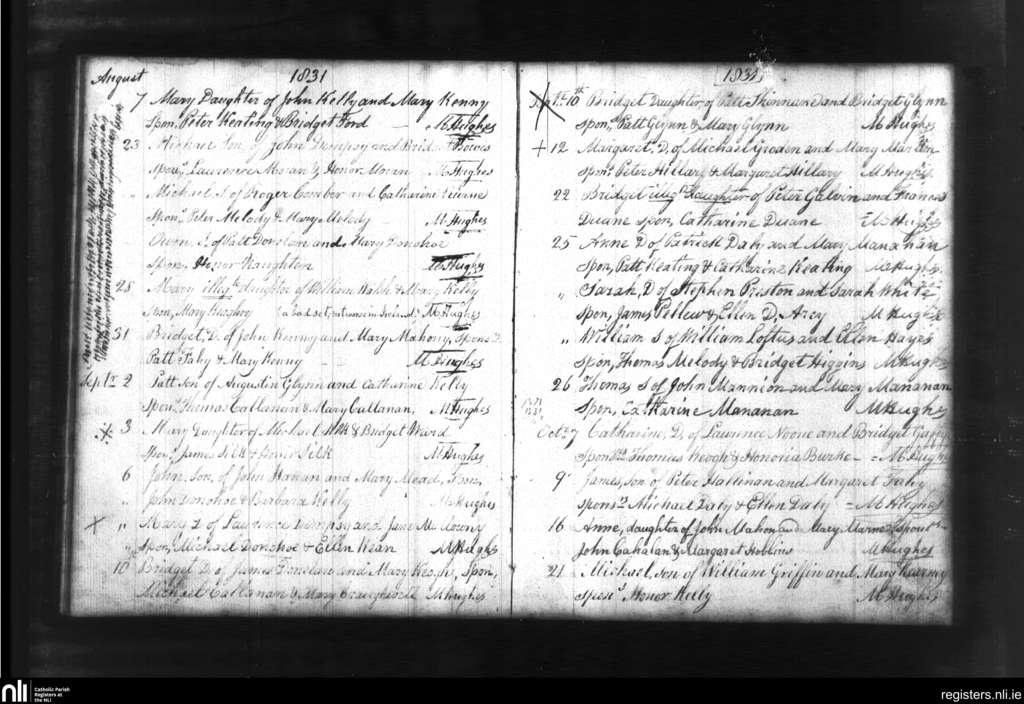 August 1831
7 Mary Daughter of John Kelly and Mary Kenny
Spon, Peter Keating & Bridget Ford — M. Hughes
23 Michael Son of John Dempsy and Bridget Bowes
Spon, Laurence Moran & Honor Moran M. Hughes
" Michael S. of Roger Comber and Catharine
Spon, Peter Melody & Mary Melody — M. Hughes
Owen S. of Patt Donelan and Mary Donohoe
Spon, Honor Naughton M. Hughes
28 Mary illegt daughter of William Walsh & Mary Kelly
Spon, Mary M. Hughes
31 Bridget, D. of John Kenny and Mary Mahony, Spons
Patt Fahy & Mary Kenny — M. Hughes
Septr 2 Patt Son of Augustin Glynn and Catharine Kelly
Spon, Thomas Callanan & Mary Cullanan, M. Hughes
3 Mary Daughter of Michael Silk & Bridget Ward
Spon, James Silk & Honor Silk M. Hughes
6 John, Son, of John Hanan and Mary Mead, Spon,
" John Donohoe & Barbara Kelly M. Hughes
+ " Mary D of Laurence Dempsy and Jane
" Spon, Michael Donohoe & Ellen Kean M. Hughes
10 Bridget D. of James Donelan and Mary Keogh, Spon,
Michael Callanan & Mary M. Hughes
1831
10th Bridget Daughter of Patt Skinnane and Bridget Glynn
Spon, Patt Glynn & Mary Glynn M. Hughes
+ 12 Margaret, D. of Michael Groden and Mary
Spon, Peter Hillary & Margaret Hillary M. Hughes
22 Bridget illegt Daughter of Peter Galvin and Frances
Duane Spon, Catharine Duane M. Hughes
25 Anne D of Patrick Daly and Mary Manahan
Spon, Patt Keating & Catharine Keating M. Hughes
" Sarah, D of Stephen Preston and Sarah White
Spon, James Pellew & Ellen D, Arcy M. Hughes
" William S of William Loftus and Ellen Hayes
Spon, Thomas Melody & Bridget Higgins M. Hughes
26 Thomas S of John Mannion and Mary Mananan
Spon, Catharine Mananan M. Hughes
Octr 7 Catharine, D, of Laurence Noone and Bridget
Spons Thomas Keogh & Honoria Burke — = M. Hughes
9 James, Son of Peter Hallinan and Margaret
Spons Michael Daly & Ellen Daly = M. Hughes
16 Anne, daughter of John Mahon and Mary Spons
John Cahalan & Margaret Hoblins M. Hughes
21 Michael, Son of William Griffin and Mary
Spons Honor Kelly M. Hughes
nli Catholic Parish
Registers at
the NLI
registers.nli.ie